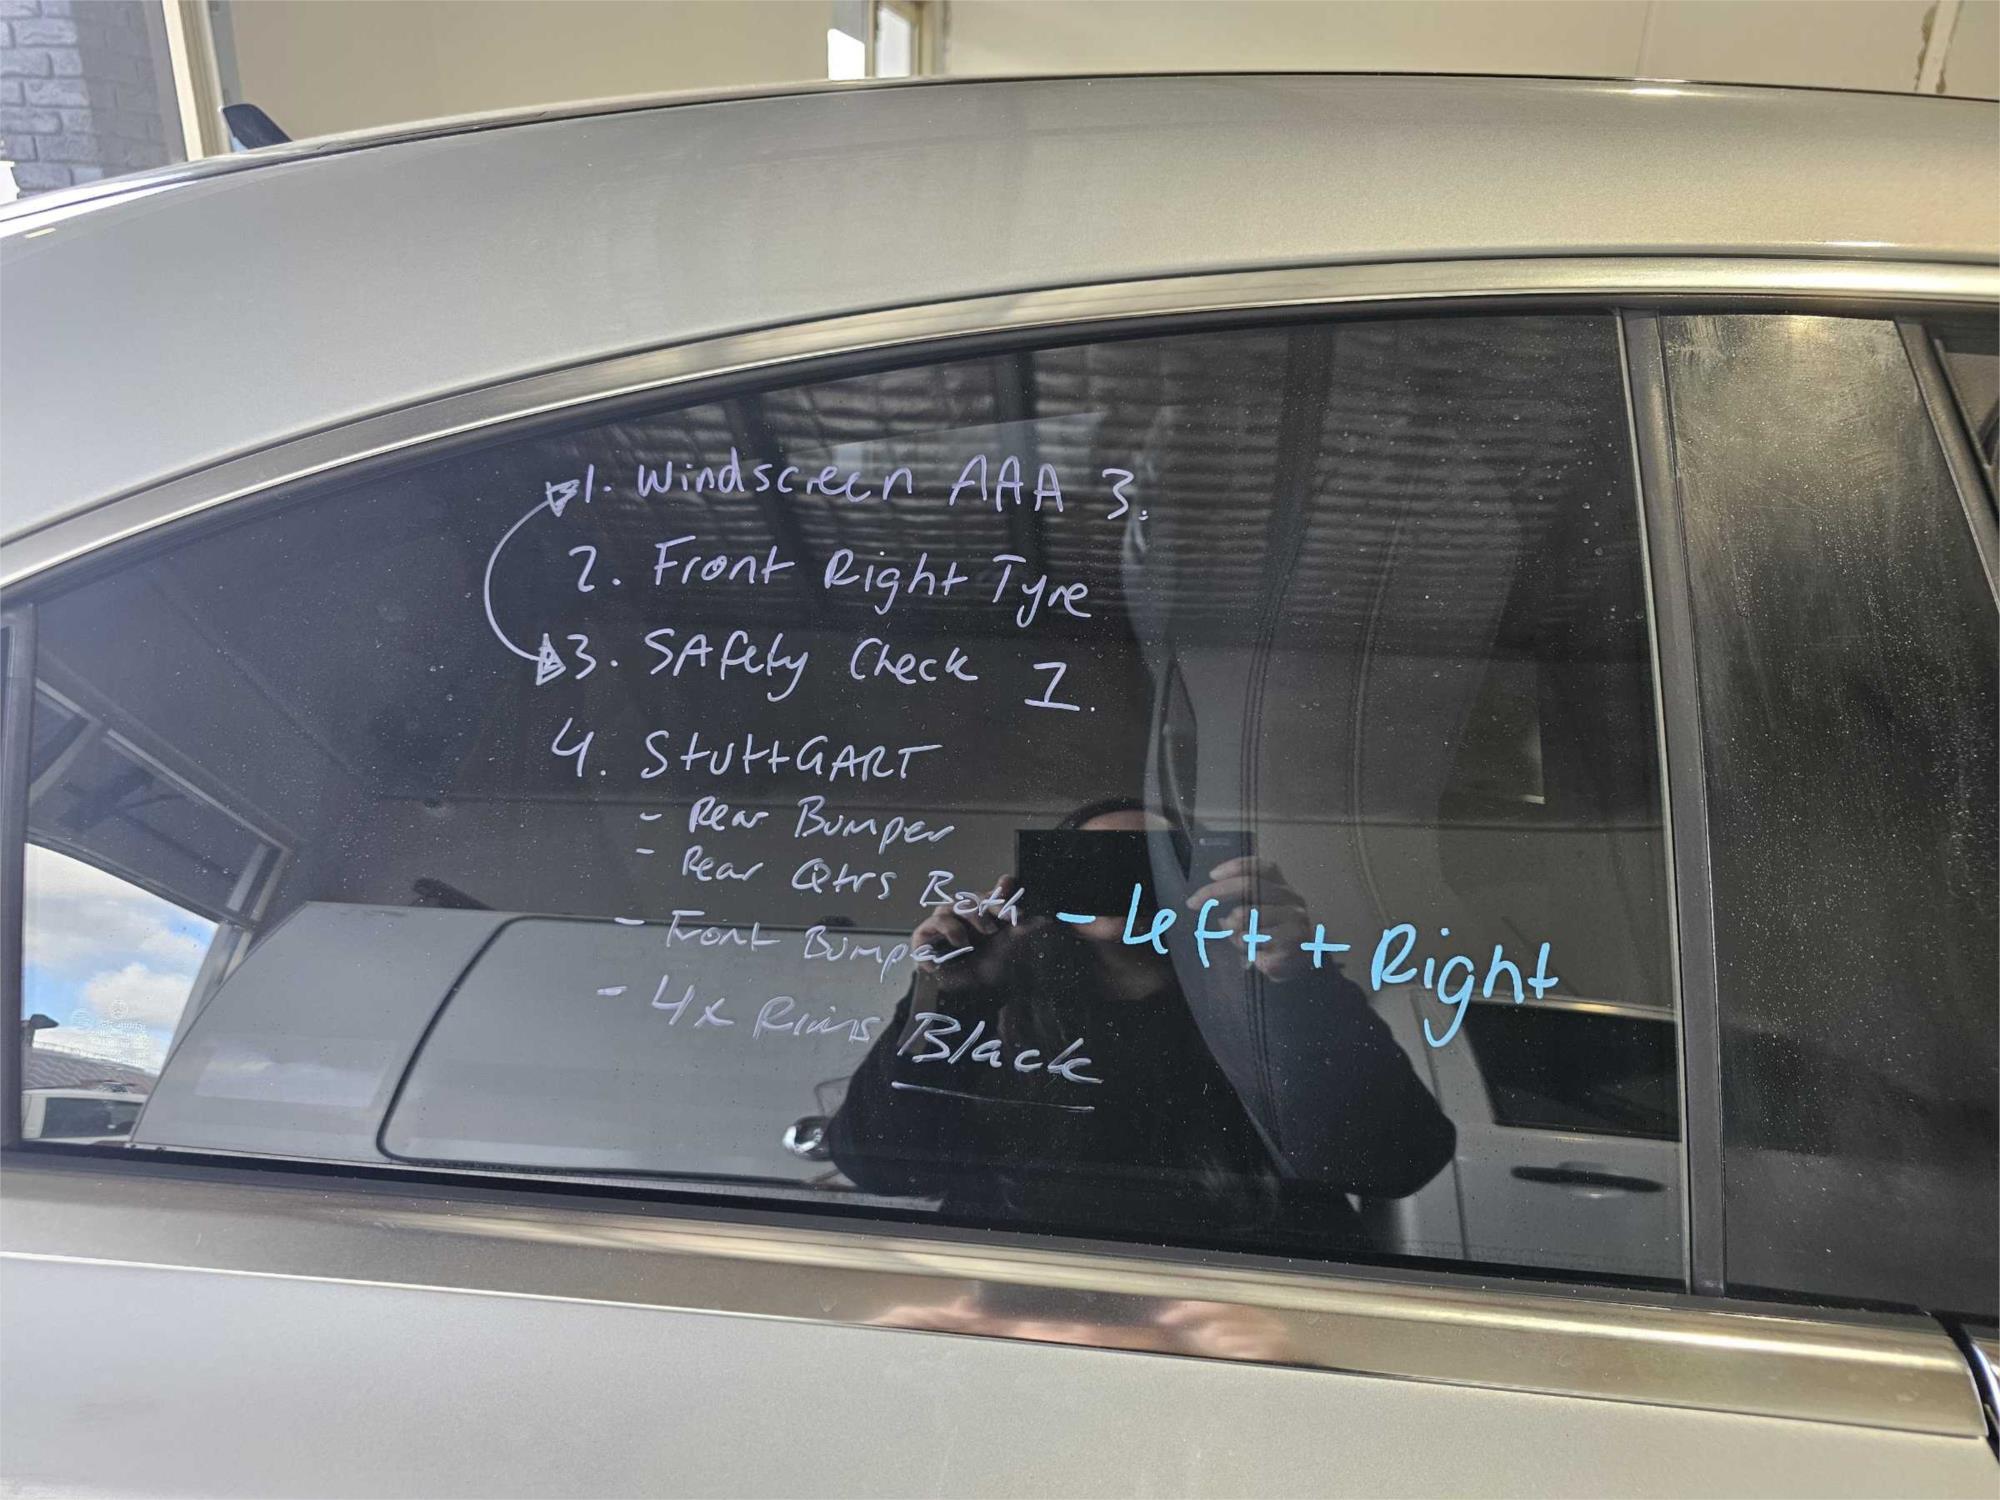 1. Windscreen AAA 3.
2. Front Right Tyre
3. SAfety Check 1.
4. StuttGART
- Rear Bumper
- Rear Qtrs Both - Left + Right
- Front Bumper
- 4x Rims Black